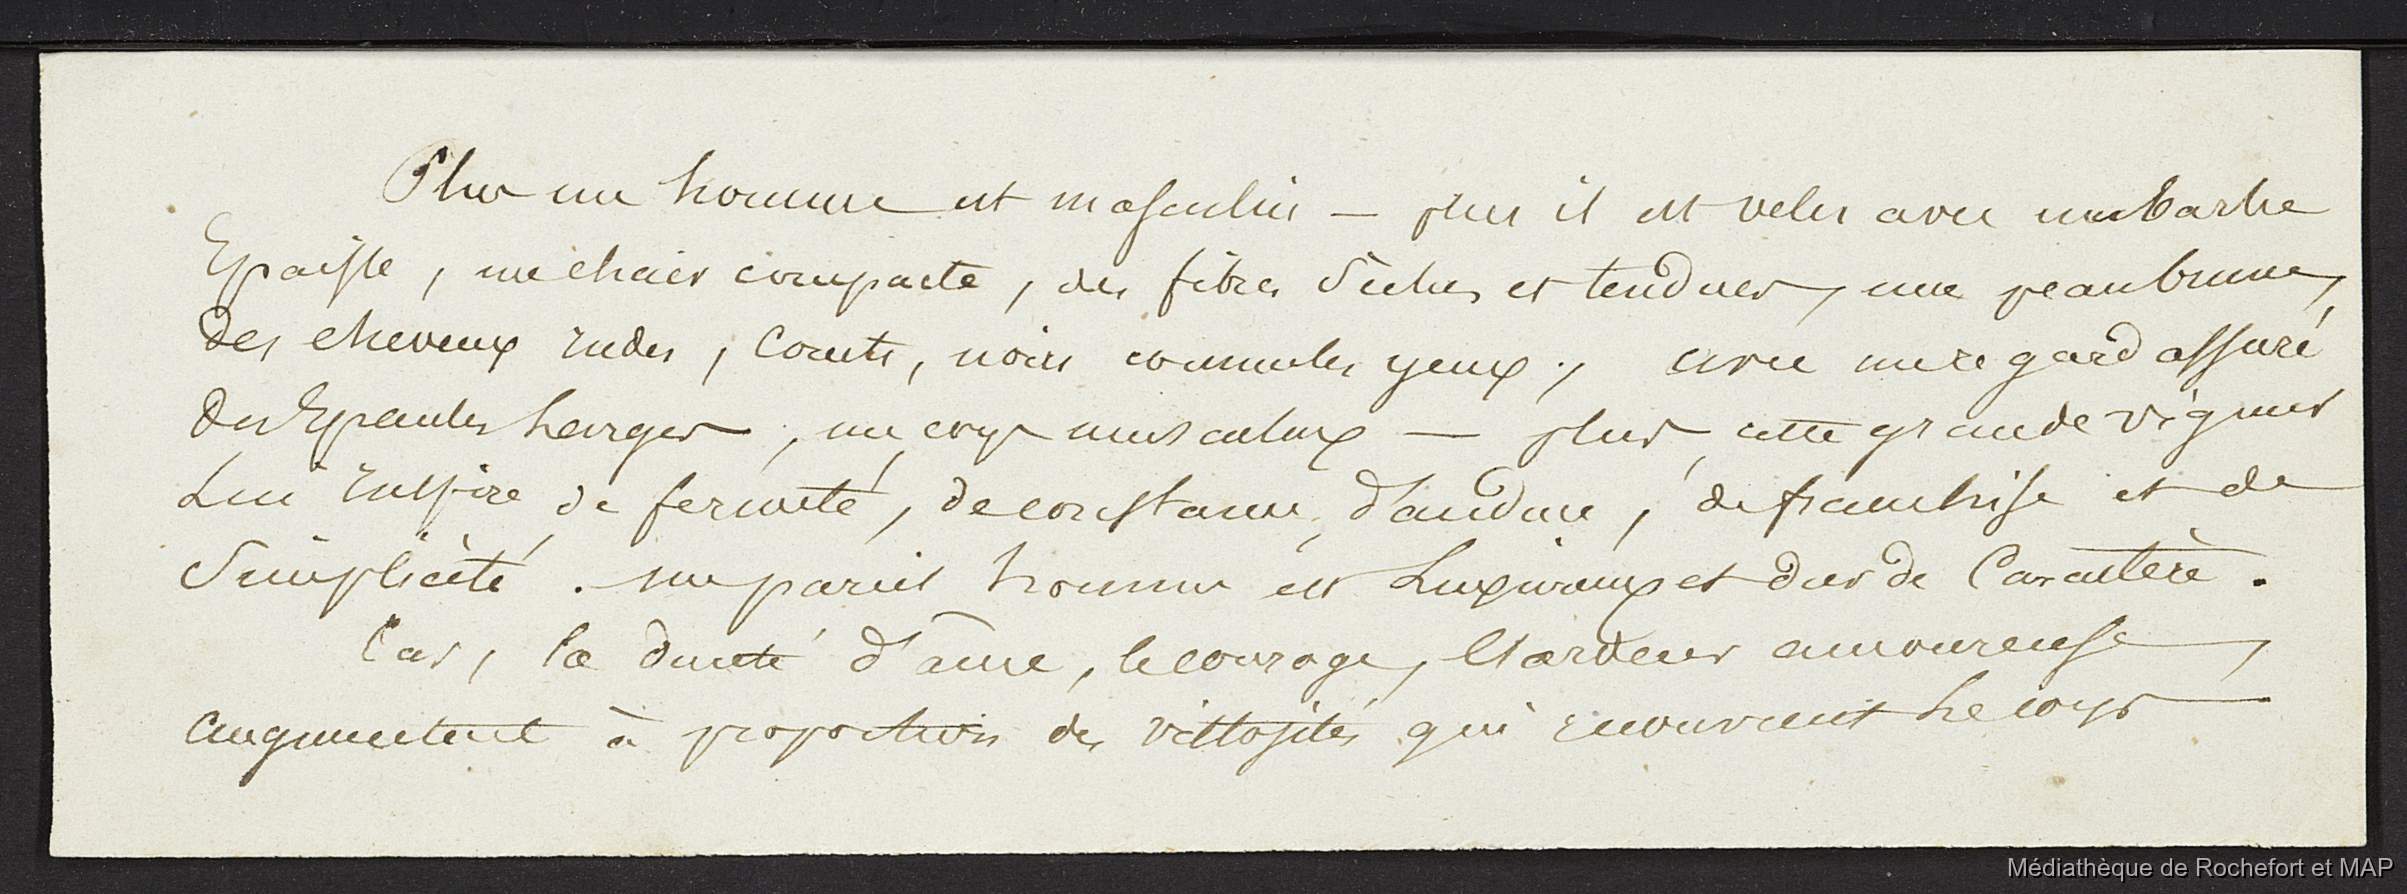 Plus un homme est masculin — plus il est velu avec une barbe
Epaisse, une chair compacte, des fibres sèches et tendues, une peau brune,
des cheveux rudes, Courts, noirs comme les yeux, avec un regard assuré
des Epaules Larges, un corps musculeux — plus cette grande vigueur
Lui inspire de fermeté, de constance, d'audace, de franchise et de
Simplicité. un pareil homme est Luxurieux et dur de Caractère.
Car, la dureté d'âme, le courage, l'ardeur amoureuse,
augmentent à proportion des villosités qui recouvrent le corps
Médiathèque de Rochefort et MAP